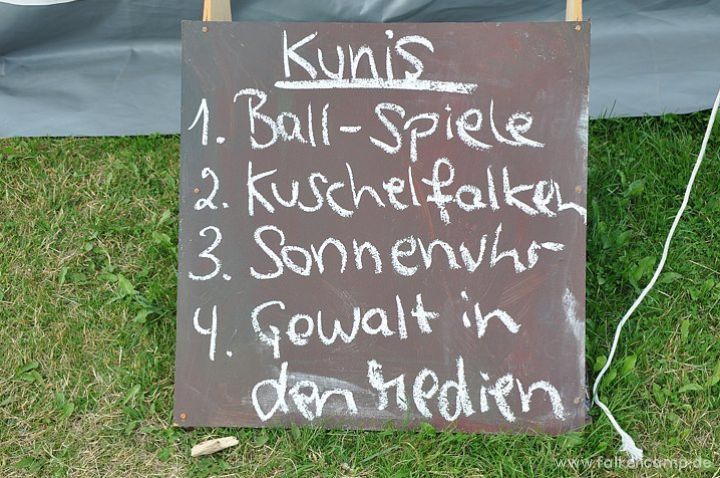 Kunis
1. Ball-Spiele
2. Kuschelfalken
3. Sonnenuhr
4. Gewalt in
den Medien
www.falkencamp.de